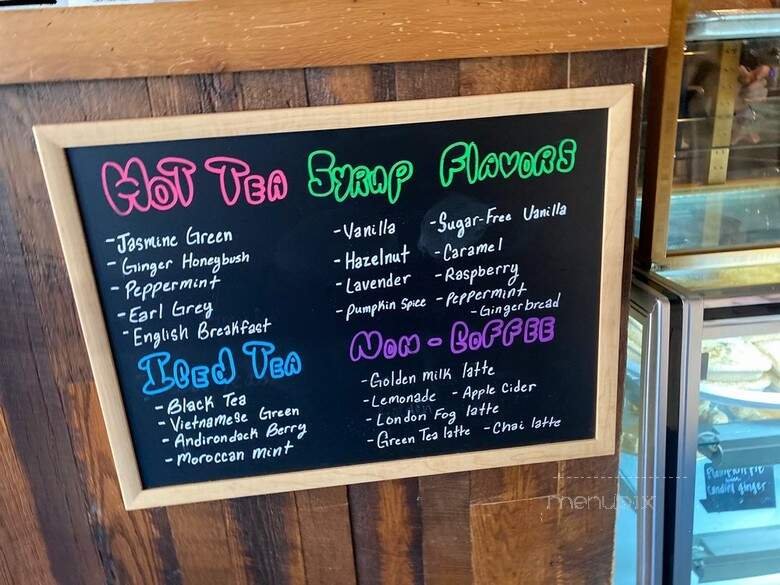 HOT TEA
-Jasmine Green
- Ginger Honeybush
- Peppermint
-Earl Grey
-English Breakfast
ICED TEA
-Black Tea
-Vietnamese Green
-Andirondack Berry
-Moroccan mint
SYRUP FLAVORS
-Vanilla
-Hazelnut
-Lavender
-Pumpkin Spice
-Sugar-Free Vanilla
-Caramel
-Raspberry
-Peppermint
-Gingerbread
NON-COFFEE
-Golden milk latte
-Lemonade -Apple Cider
-London Fog latte
-Green Tea latte -Chai latte
candied ginger
menupix